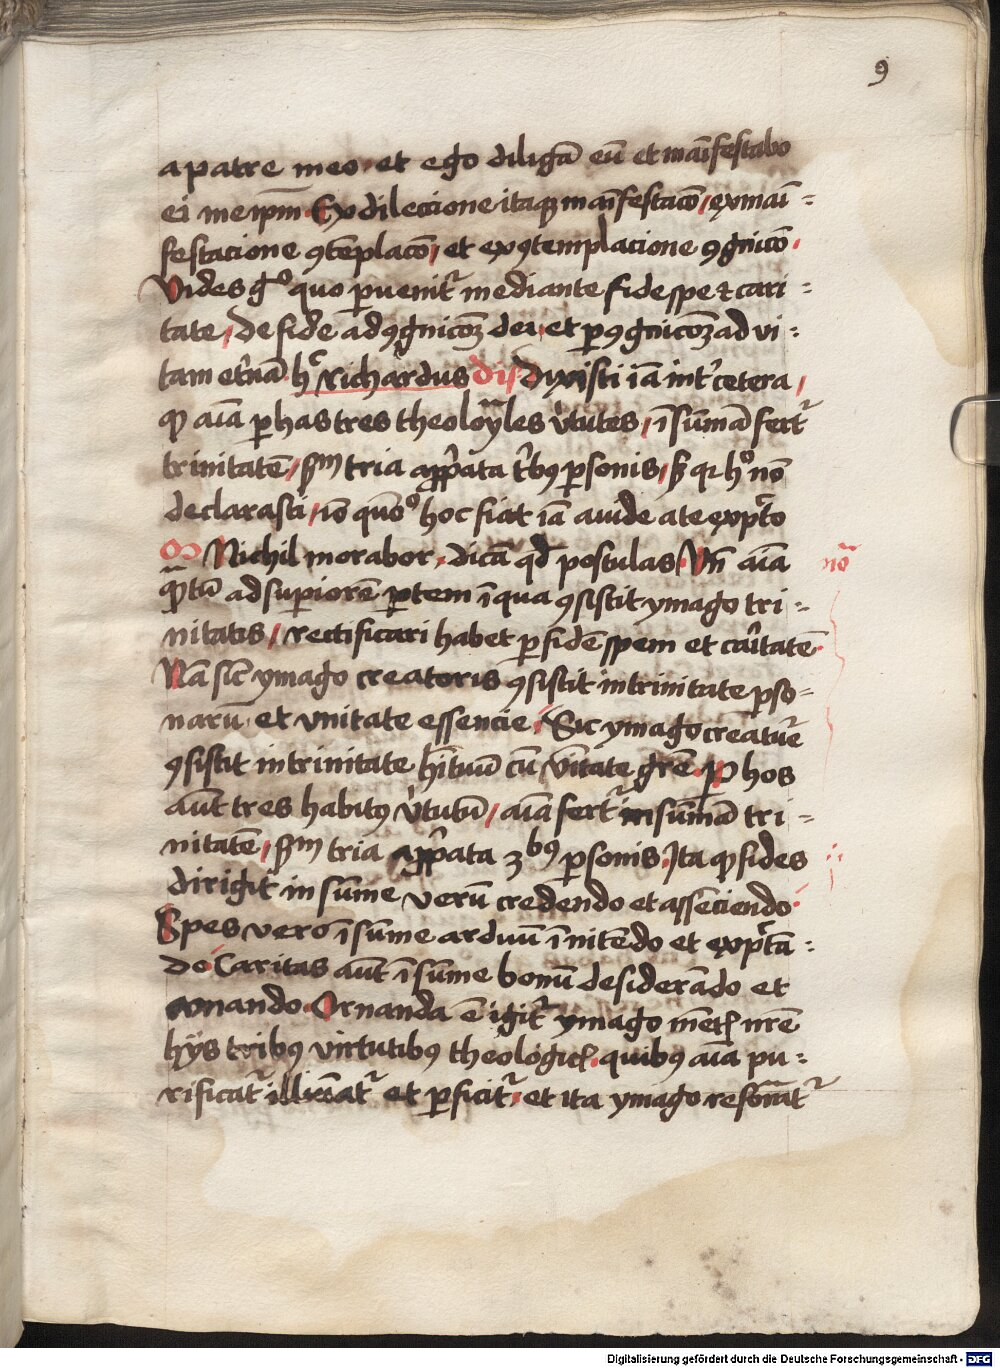 9
a patre meo et ego diligā eū et maīfestabo
ei meip̄m Ex dileccione itaqꝫ maīfestacō / ex maī-
festacione ꝯtēplacō / et ex ꝯtemplacione ꝯgnicō
Vides gͦ quo ꝑuenit᷑ mediante fide spe ⁊ cari-
tate / de fide ad ꝯgnicōꝫ dei et ꝑ ꝯgnicōꝫ ad vi-
tam et̓nā h̄ richardus dis Dixisti iā int̓ cetera /
ꝙ aīa ꝑ has tres theoloy̅les v̓tutes / ī sūmā fert᷑
trinitatē / sꝫm tria app̓ata t̓bꝯ ꝑsonis / sꝫ qꝛ hͦ nō
declarasti / iō quōͦ hoc fiat iā auide a te exp̄cto
Nichil morabor dicā qd̄ postulas Vn̄ aīa
nō
qͣ̄tū ad suꝑiorē ꝑtem ī qua ꝯsistit ymago tri-
nitatis / rectificari habet ꝑ fidē spem et caritatē
Nā sic̄ ymago creatoris ꝯsistit in trinitate ꝑso-
narū et vnitate essencie Sic ymago creature
ꝯsistit in trinitate h̄ituū cū vnitate gr̄e Ꝑ hos
aūt tres habitꝯ v̓tutū / aīa fert᷑ in sūmā tri-
nitatē / sꝫm tria app̓ata 3bꝯ ꝑsonis Ita ꝙ fides
dirigit in sūme verū credendo et assenciendo
Spes vero ī sūme arduū īnitēdo et exp̄ctā-
do Caritas aūt ī sūme bonū desiderādo et
amando Ornanda ē igit᷑ ymago mētꝭ nr̄e
hijs tribꝯ virtutibꝯ theologicꝭ quibꝯ aīa pu-
rificat᷑ illūīat᷑ et ꝑficit᷑ et ita ymago reformat᷑
Digitalisierung gefördert durch die Deutsche Forschungsgemeinschaft - DFG